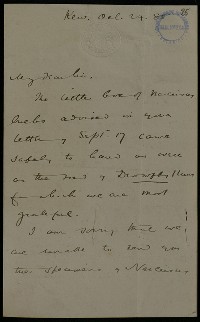 Kew. Oct. 24.
My dear Sir,
The little box of Narcissus
bulbs advised in your
letter of Sept 17 came
safely to hand as were
as the seed of
for which we are most
grateful.
I am sorry that we
are unable to send you
two specimens of Narcissus